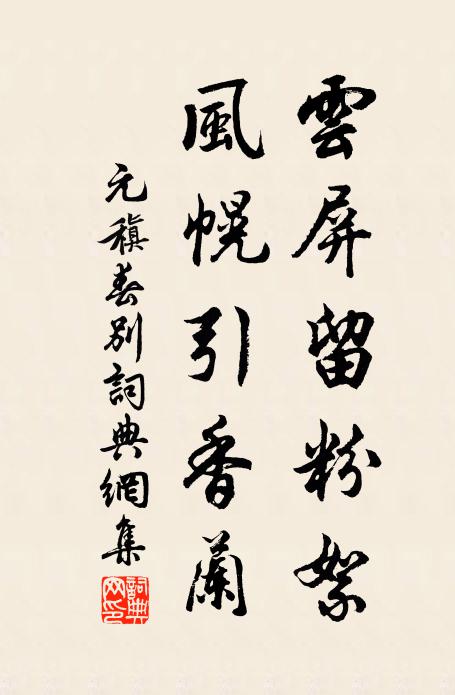 雲屏留粉絮
風幌引香蘭
元稹春別詞典網集
詞典網印